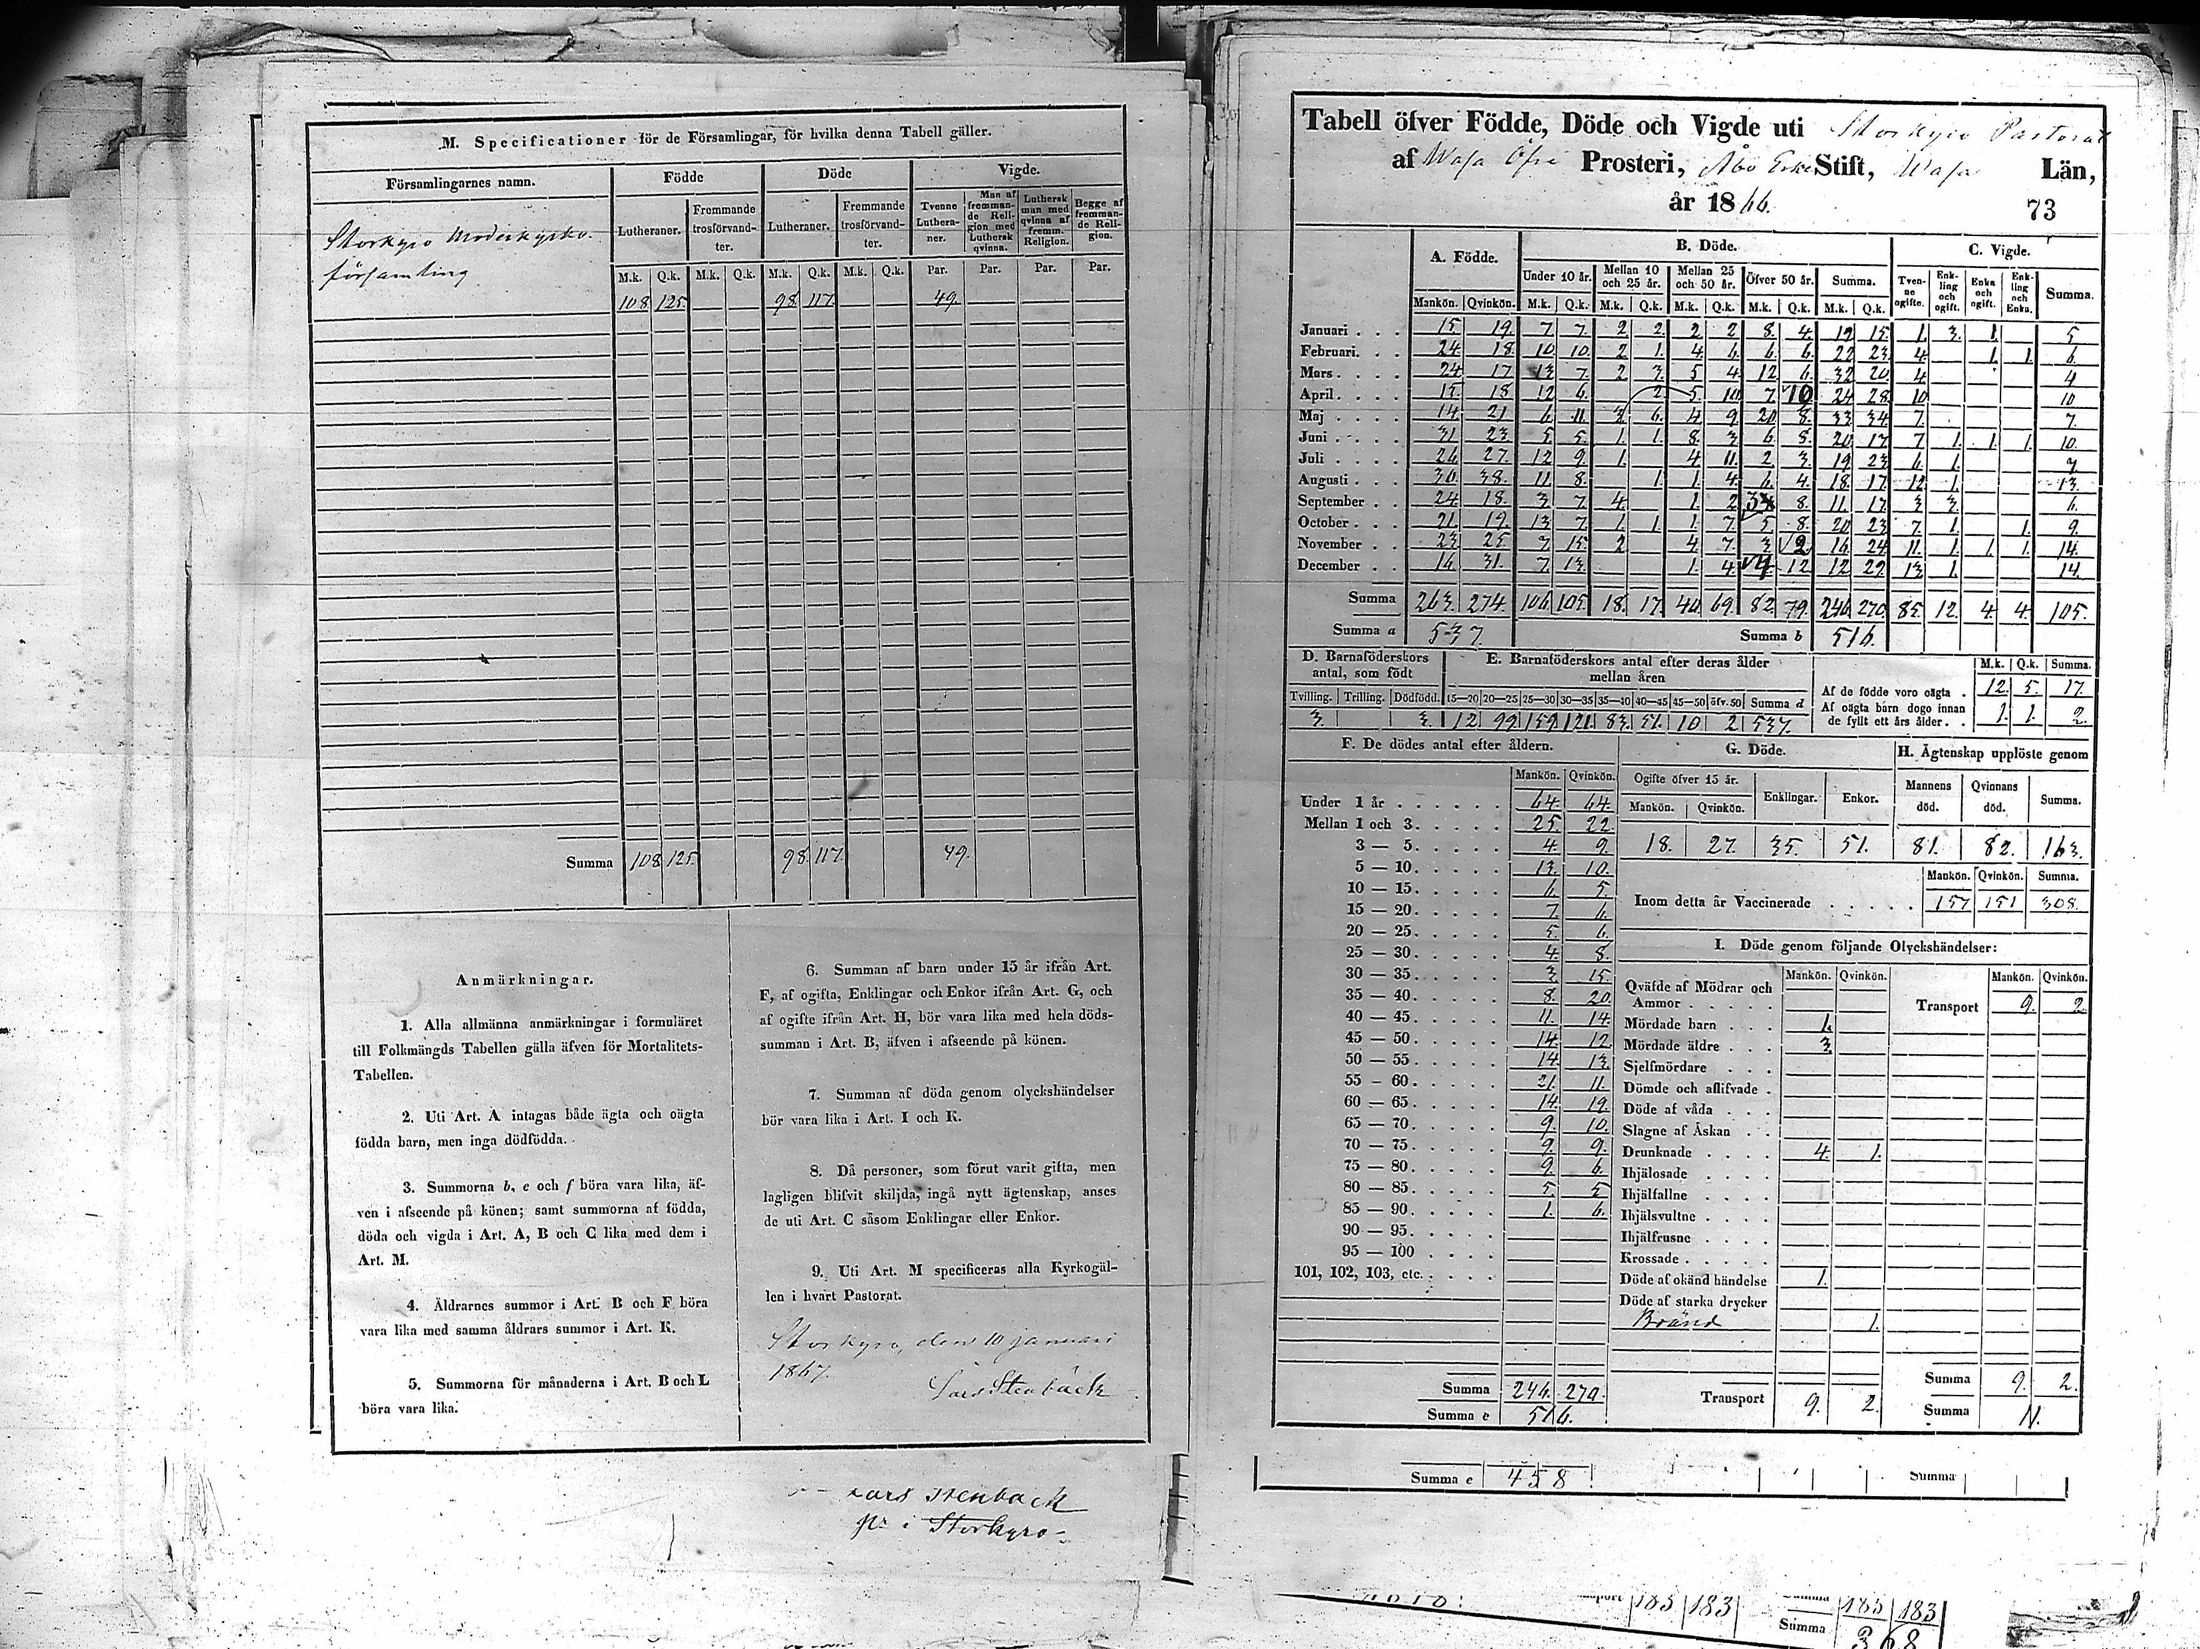 M. Specificationer för de Församlingar, för hvilka denna Tabell gäller.
Församlingarnes namn. Födde Döde Vigde.
Lutheraner. Fremmande trosförvandter. Lutheraner. Fremmande trosförvandter. Tvenne Lutheraner. Man af fremmande Religion med Luthersk qvinna. Luthersk man med qvinna af fremm. Religion. Begge af fremmande Religion.
M.k. Q.k. M.k. Q.k. M.k. Q.k. M.k. Q.k. Par. Par. Par. Par.
Storkyro Moderkyrko-
församling
108 125. 98. 117. 49.
Summa 108 125. 98. 117. 49.
Anmärkningar.
1. Alla allmänna anmärkningar i formuläret
till Folkmängds Tabellen gälla äfven för Mortalitets-
Tabellen.
2. Uti Art. A intagas både ägta och oägta
födda barn, men inga dödfödda.
3. Summorna b, e och f böra vara lika, äf-
ven i afseende på könen; samt summorna af födda,
döda och vigda i Art. A, B och C lika med dem i
Art. M.
4. Äldrarnes summor i Art. B och F böra
vara lika med samma åldrars summor i Art. K.
5. Summorna för månaderna i Art. B och L
böra vara lika.
6. Summan af barn under 15 år ifrån Art.
F, af ogifta, Enklingar och Enkor ifrån Art. G, och
af ogifte ifrån Art. H, bör vara lika med hela döds-
summan i Art. B, äfven i afseende på könen.
7. Summan af döda genom olyckshändelser
bör vara lika i Art. I och K.
8. Då personer, som förut varit gifta, men
lagligen blifvit skiljda, ingå nytt ägtenskap, anses
de uti Art. C såsom Enklingar eller Enkor.
9. Uti Art. M specificeras alla Kyrkogäl-
len i hvart Pastorat.
Storkyro, den 10 Januari
1867.
Lars Stenbäck
Lars Stenback
pr i Storkyro
Tabell öfver Födde, Döde och Vigde uti Storkyro Pastorat
af Wasa Öfre Prosteri, Åbo Erke Stift, Wasa Län,
år 1866.
73
A. Födde. B. Döde. C. Vigde.
Under 10 år. Mellan 10 och 25 år. Mellan 25 och 50 år. Öfver 50 år. Summa. Tvenne ogifte. Enkling och ogift. Enka och ogift. Enkling och Enka. Summa.
Mankön. Qvinkön. M.k. Q.k. M.k. Q.k. M.k. Q.k. M.k. Q.k. M.k. Q.k.
Januari 15. 19. 7. 7. 2. 2. 2. 2 8. 4. 19 15. 1. 3. 1. 5
Februari. 24 18. 10. 10. 2 1. 4 6. 6. 6. 22 23. 4. 1. 1. 6.
Mars 24. 17 13. 7. 2 3. 5 4. 12 6. 32 20. 4 4
April 15. 18 12 6. 2. 5. 10. 7. 10 24 28 10 10
Maj 14. 21 6. 11. 3. 6. 4 9 20. 8. 33 34 7. 7.
Juni 31. 23. 5 5. 1. 1. 8. 3 6 8. 20. 17. 7. 1. 1. 1. 10.
Juli 26 27. 12 9. 1. 4 11. 2. 3. 19 23 6. 1. 7.
Augusti 30. 38. 11. 8. 1. 1. 4 6. 4. 18. 17. 12. 1. 13.
September 24 18. 3. 7. 4. 1. 2 3 8. 11. 17. 3 3. 6.
October 21. 19. 13 7. 1. 1. 1. 7. 5 8. 20 23 7. 1. 1. 9.
November 23 25 7. 15. 2 4. 7. 3. 2. 16. 24 11. 1. 1. 1. 14.
December 16. 31. 7. 13. 1. 4. 4 12 12 29. 13. 1. 14.
Summa 263. 274. 106. 105. 18. 17. 40. 69. 82. 79. 246. 270. 85. 12. 4. 4. 105.
Summa a 537. Summa b 516.
D. Barnaföderskors antal, som födt
E. Barnaföderskors antal efter deras ålder mellan åren
M.k. Q.k. Summa.
Tvilling. Trilling. Dödfödd. 15—20 20—25 25—30 30—35 35—40 40—45 45—50 öfv. 50 Summa d
3. 3. 12 99 159 121. 83. 51. 10 2 537.
Af de födde voro oägta . 12. 5. 17.
Af oägta barn dogo innan
de fyllt ett års ålder. . 1. 1. 2.
F. De dödes antal efter åldern.
Mankön. Qvinkön.
Under 1 år 64. 64.
Mellan 1 och 3. 25. 22.
3 — 5. 4. 9.
5 — 10. 13. 10.
10 — 15. 6. 5.
15 — 20. 7. 6.
20 — 25. 5. 6.
25 — 30. 4. 8.
30 — 35. 3. 15.
35 — 40. 8. 20.
40 — 45. 11. 14.
45 — 50. 14. 12
50 — 55. 14. 13.
55 — 60. 21. 11.
60 — 65. 14. 19.
65 — 70. 9. 10.
70 — 75. 9. 9.
75 — 80. 9. 6.
80 — 85. 5. 5
85 — 90. 1. 6.
90 — 95.
95 — 100
101, 102, 103, etc.
Summa 246. 270.
Summa e 516.
G. Döde.
Ogifte öfver 15 år. Enklingar. Enkor.
Mankön. Qvinkön.
18. 27. 35. 51.
H. Ägtenskap upplöste genom
Mannens död. Qvinnans död. Summa.
81. 82. 163.
Mankön. Qvinkön. Summa.
Inom detta år Vaccinerade 157 151 308.
I. Döde genom följande Olyckshändelser:
Mankön. Qvinkön. Mankön. Qvinkön.
Qväfde af Mödrar och
Ammor
Transport 9. 2.
Mördade barn 1.
Mördade äldre 3.
Sjelfmördare
Dömde och aflifvade
Döde af våda
Slagne af Åskan
Drunknade 4. 1.
Ihjälosade
Ihjälfallne
Ihjälsvultne
Ihjälfrusne
Krossade
Döde af okänd händelse 1.
Döde af starka drycker
Bränd 1.
Transport 9. 2.
Summa 9. 2.
Summa 11.
Summa e 458 Summa
185 183 Summa 185 183
Summa 368